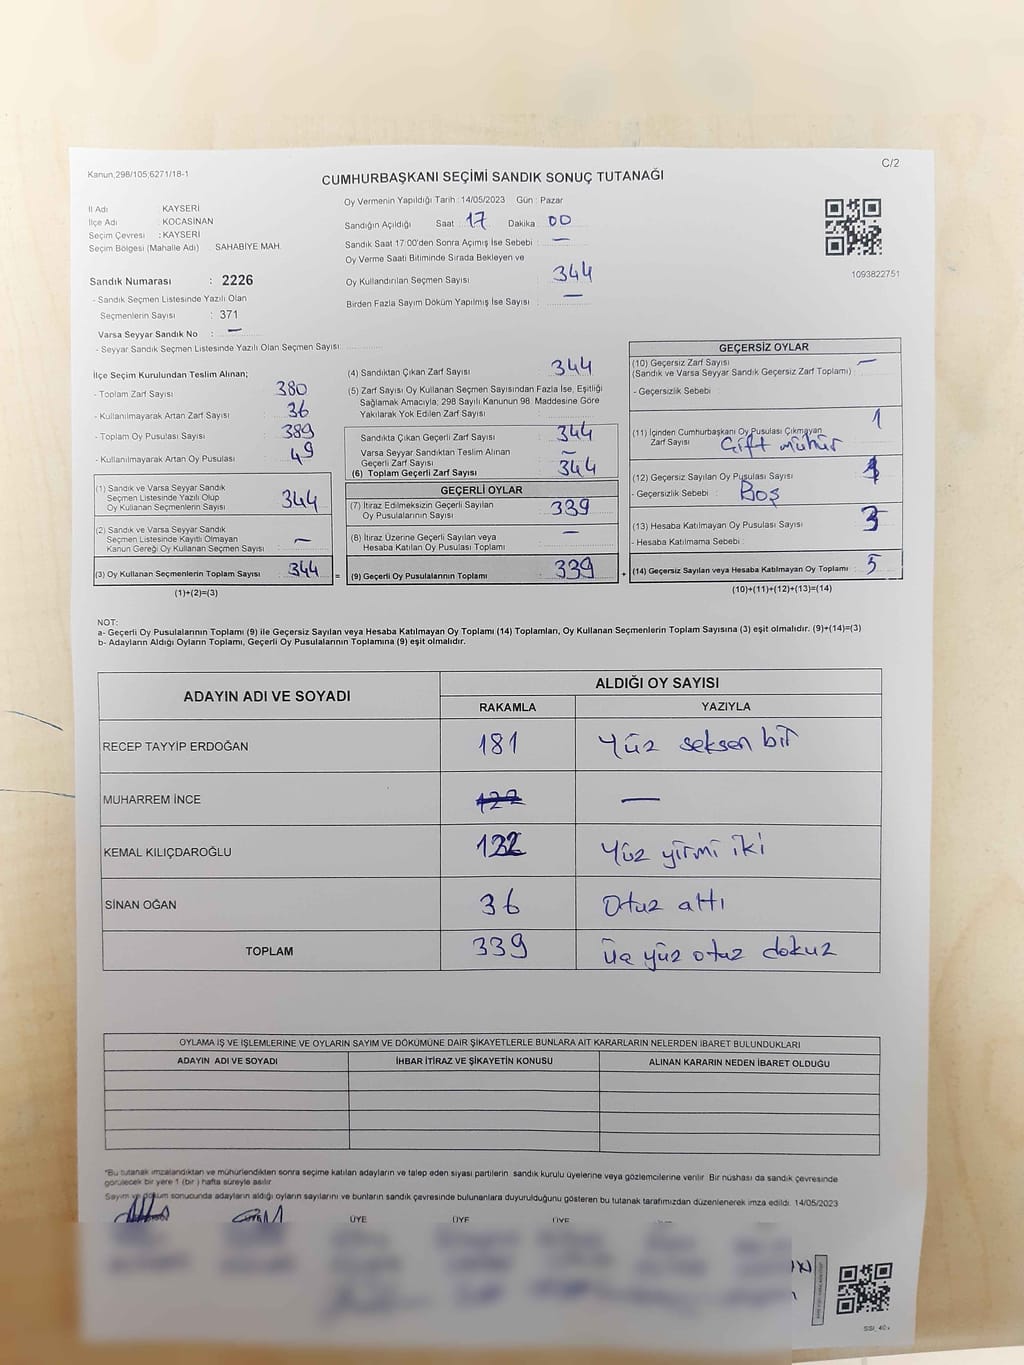 Kanun,298/105;6271/18-1
C/2
CUMHURBAŞKANI SEÇİMİ SANDIK SONUÇ TUTANAĞI
İl Adı KAYSERİ
İlçe Adı : KOCASİNAN
Seçim Çevresi : KAYSERİ
Seçim Bölgesi (Mahalle Adı) : SAHABİYE MAH.
Sandık Numarası : 2226
- Sandık Seçmen Listesinde Yazılı Olan
Seçmenlerin Sayısı : 371
Varsa Seyyar Sandık No : —
- Seyyar Sandık Seçmen Listesinde Yazılı Olan Seçmen Sayısı:
Oy Vermenin Yapıldığı Tarih : 14/05/2023 Gün : Pazar
Sandığın Açıldığı Saat : 17 Dakika : 00
Sandık Saat 17:00'den Sonra Açımış İse Sebebi : —
Oy Verme Saati Bitiminde Sırada Bekleyen ve
Oy Kullandırılan Seçmen Sayısı : 344
Birden Fazla Sayım Döküm Yapılmış İse Sayısı : —
1093822751
İlçe Seçim Kurulundan Teslim Alınan;
- Toplam Zarf Sayısı : 380
- Kullanılmayarak Artan Zarf Sayısı : 36
- Toplam Oy Pusulası Sayısı : 389
- Kullanılmayarak Artan Oy Pusulası : 49
(1) Sandık ve Varsa Seyyar Sandık
Seçmen Listesinde Yazılı Olup
Oy Kullanan Seçmenlerin Sayısı : 344
(2) Sandık ve Varsa Seyyar Sandık
Seçmen Listesinde Kayıtlı Olmayan
Kanun Gereği Oy Kullanan Seçmen Sayısı : —
(3) Oy Kullanan Seçmenlerin Toplam Sayısı : 344
(1)+(2)=(3)
(4) Sandıktan Çıkan Zarf Sayısı : 344
(5) Zarf Sayısı Oy Kullanan Seçmen Sayısından Fazla İse, Eşitliği
Sağlamak Amacıyla; 298 Sayılı Kanunun 98. Maddesine Göre
Yakılarak Yok Edilen Zarf Sayısı :
Sandıkta Çıkan Geçerli Zarf Sayısı : 344
Varsa Seyyar Sandıktan Teslim Alınan
Geçerli Zarf Sayısı : —
(6) Toplam Geçerli Zarf Sayısı : 344
GEÇERLİ OYLAR
(7) İtiraz Edilmeksizin Geçerli Sayılan
Oy Pusulalarının Sayısı : 339
(8) İtiraz Üzerine Geçerli Sayılan veya
Hesaba Katılan Oy Pusulası Toplamı : —
= (9) Geçerli Oy Pusulalarının Toplamı : 339 +
GEÇERSİZ OYLAR
(10) Geçersiz Zarf Sayısı
(Sandık ve Varsa Seyyar Sandık Geçersiz Zarf Toplamı) : —
- Geçersizlik Sebebi :
(11) İçinden Cumhurbaşkanı Oy Pusulası Çıkmayan
Zarf Sayısı : 1
Çift mühür
(12) Geçersiz Sayılan Oy Pusulası Sayısı : 1
- Geçersizlik Sebebi : Boş
(13) Hesaba Katılmayan Oy Pusulası Sayısı : 3
- Hesaba Katılmama Sebebi :
(14) Geçersiz Sayılan veya Hesaba Katılmayan Oy Toplamı : 5
(10)+(11)+(12)+(13)=(14)
NOT:
a- Geçerli Oy Pusulalarının Toplamı (9) ile Geçersiz Sayılan veya Hesaba Katılmayan Oy Toplamı (14) Toplamları, Oy Kullanan Seçmenlerin Toplam Sayısına (3) eşit olmalıdır. (9)+(14)=(3)
b- Adayların Aldığı Oyların Toplamı, Geçerli Oy Pusulalarının Toplamına (9) eşit olmalıdır.
ADAYIN ADI VE SOYADI ALDIĞI OY SAYISI
RAKAMLA YAZIYLA
RECEP TAYYİP ERDOĞAN 181 Yüz seksen bir
MUHARREM İNCE 122 —
KEMAL KILIÇDAROĞLU 122 Yüz yirmi iki
SİNAN OĞAN 36 Otuz altı
TOPLAM 339 Üç yüz otuz dokuz
OYLAMA İŞ VE İŞLEMLERİNE VE OYLARIN SAYIM VE DÖKÜMÜNE DAİR ŞİKAYETLERLE BUNLARA AİT KARARLARIN NELERDEN İBARET BULUNDUKLARI
ADAYIN ADI VE SOYADI İHBAR İTİRAZ VE ŞİKAYETİN KONUSU ALINAN KARARIN NEDEN İBARET OLDUĞU
*Bu tutanak imzalandıktan ve mühürlendikten sonra seçime katılan adayların ve talep eden siyasi partilerin sandık kurulu üyelerine veya gözlemcilerine verilir. Bir nüshası da sandık çevresinde
görülecek bir yere 1 (bir) hafta süreyle asılır.
Sayım ve döküm sonucunda adayların aldığı oyların sayılarını ve bunların sandık çevresinde bulunanlara duyurulduğunu gösteren bu tutanak tarafımızdan düzenlenerek imza edildi. 14/05/2023
ÜYE ÜYE ÜYE